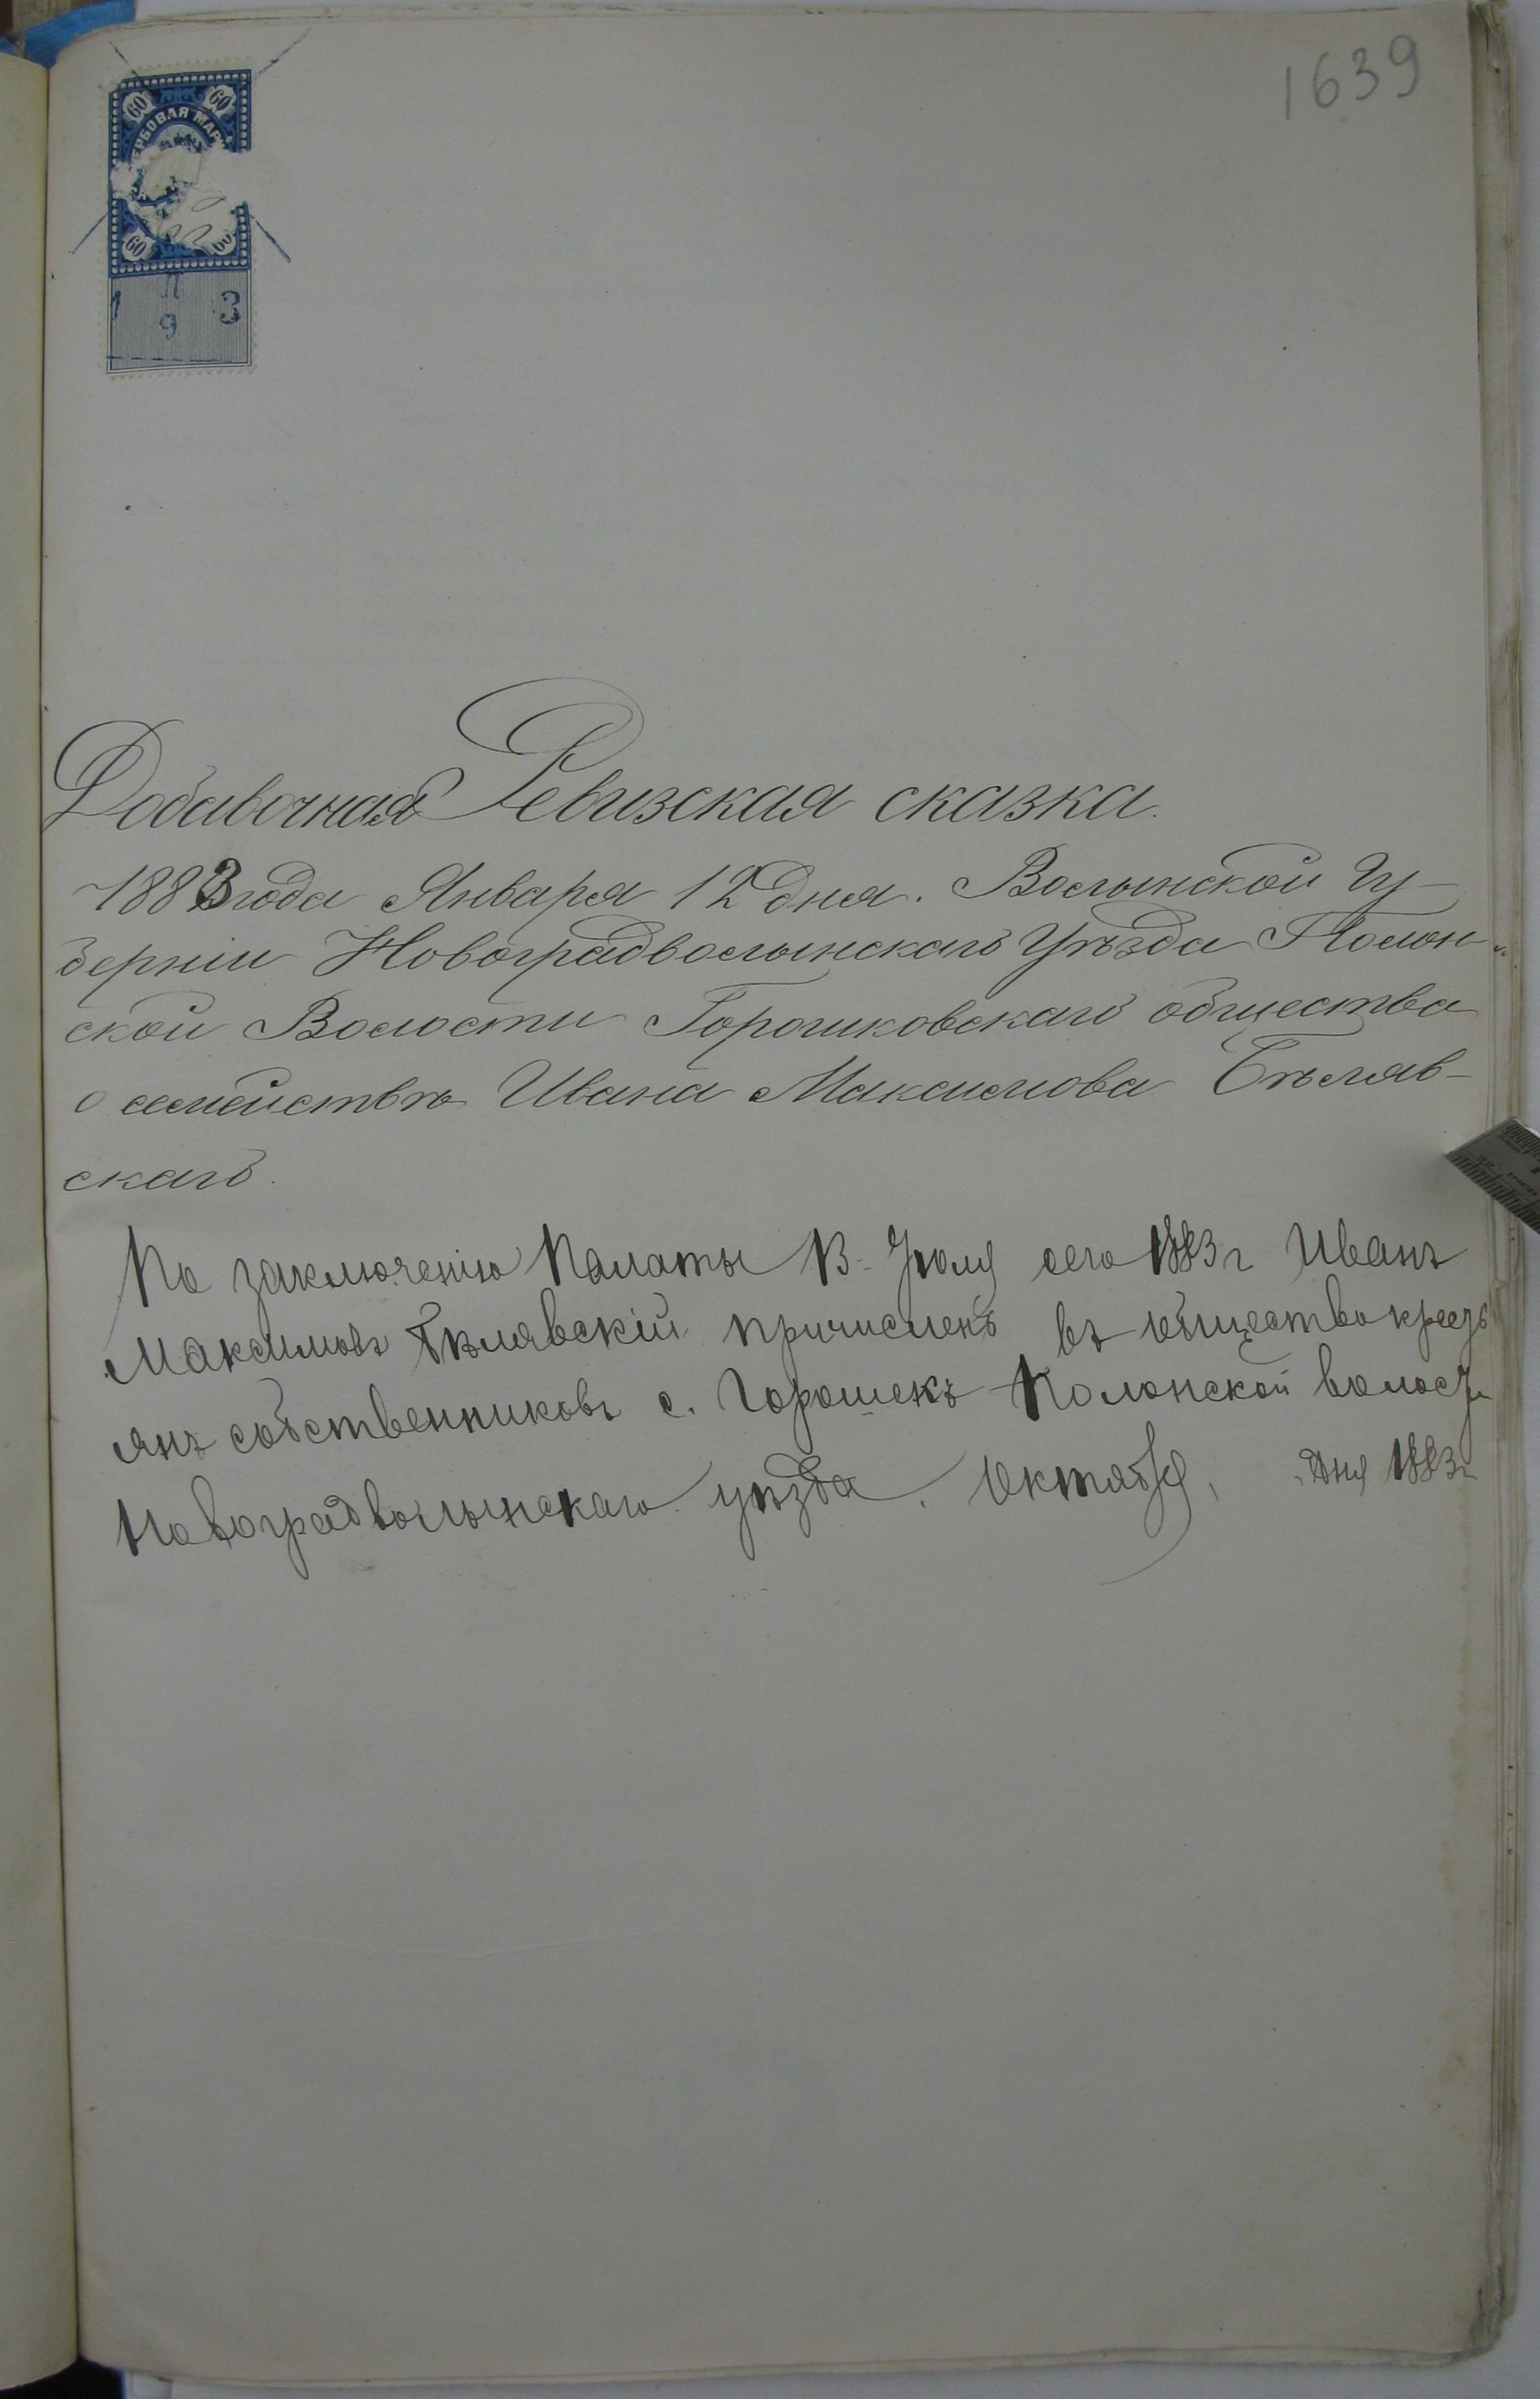 1639
60 60
РБОВАЯ МАР
60 60
1 9 3
Добавочная Ревизская сказка.
1883 года Января 12 дня. Волынской Гу-
берніи Новоградволынскаго Уѣзда Полон-
ской Волости Горошковскаго общества
о семействѣ Ивана Максимова Бѣляв-
скаго.
По заключенію Палаты 13 Іюля сего 1883 г Иванъ
Максимовъ Бѣлявскій причисленъ въ общество кресть
янъ собственниковъ с. Горошекъ Полонской волости
Новоградволынскаго уѣзда. Октября, дня 1883 г